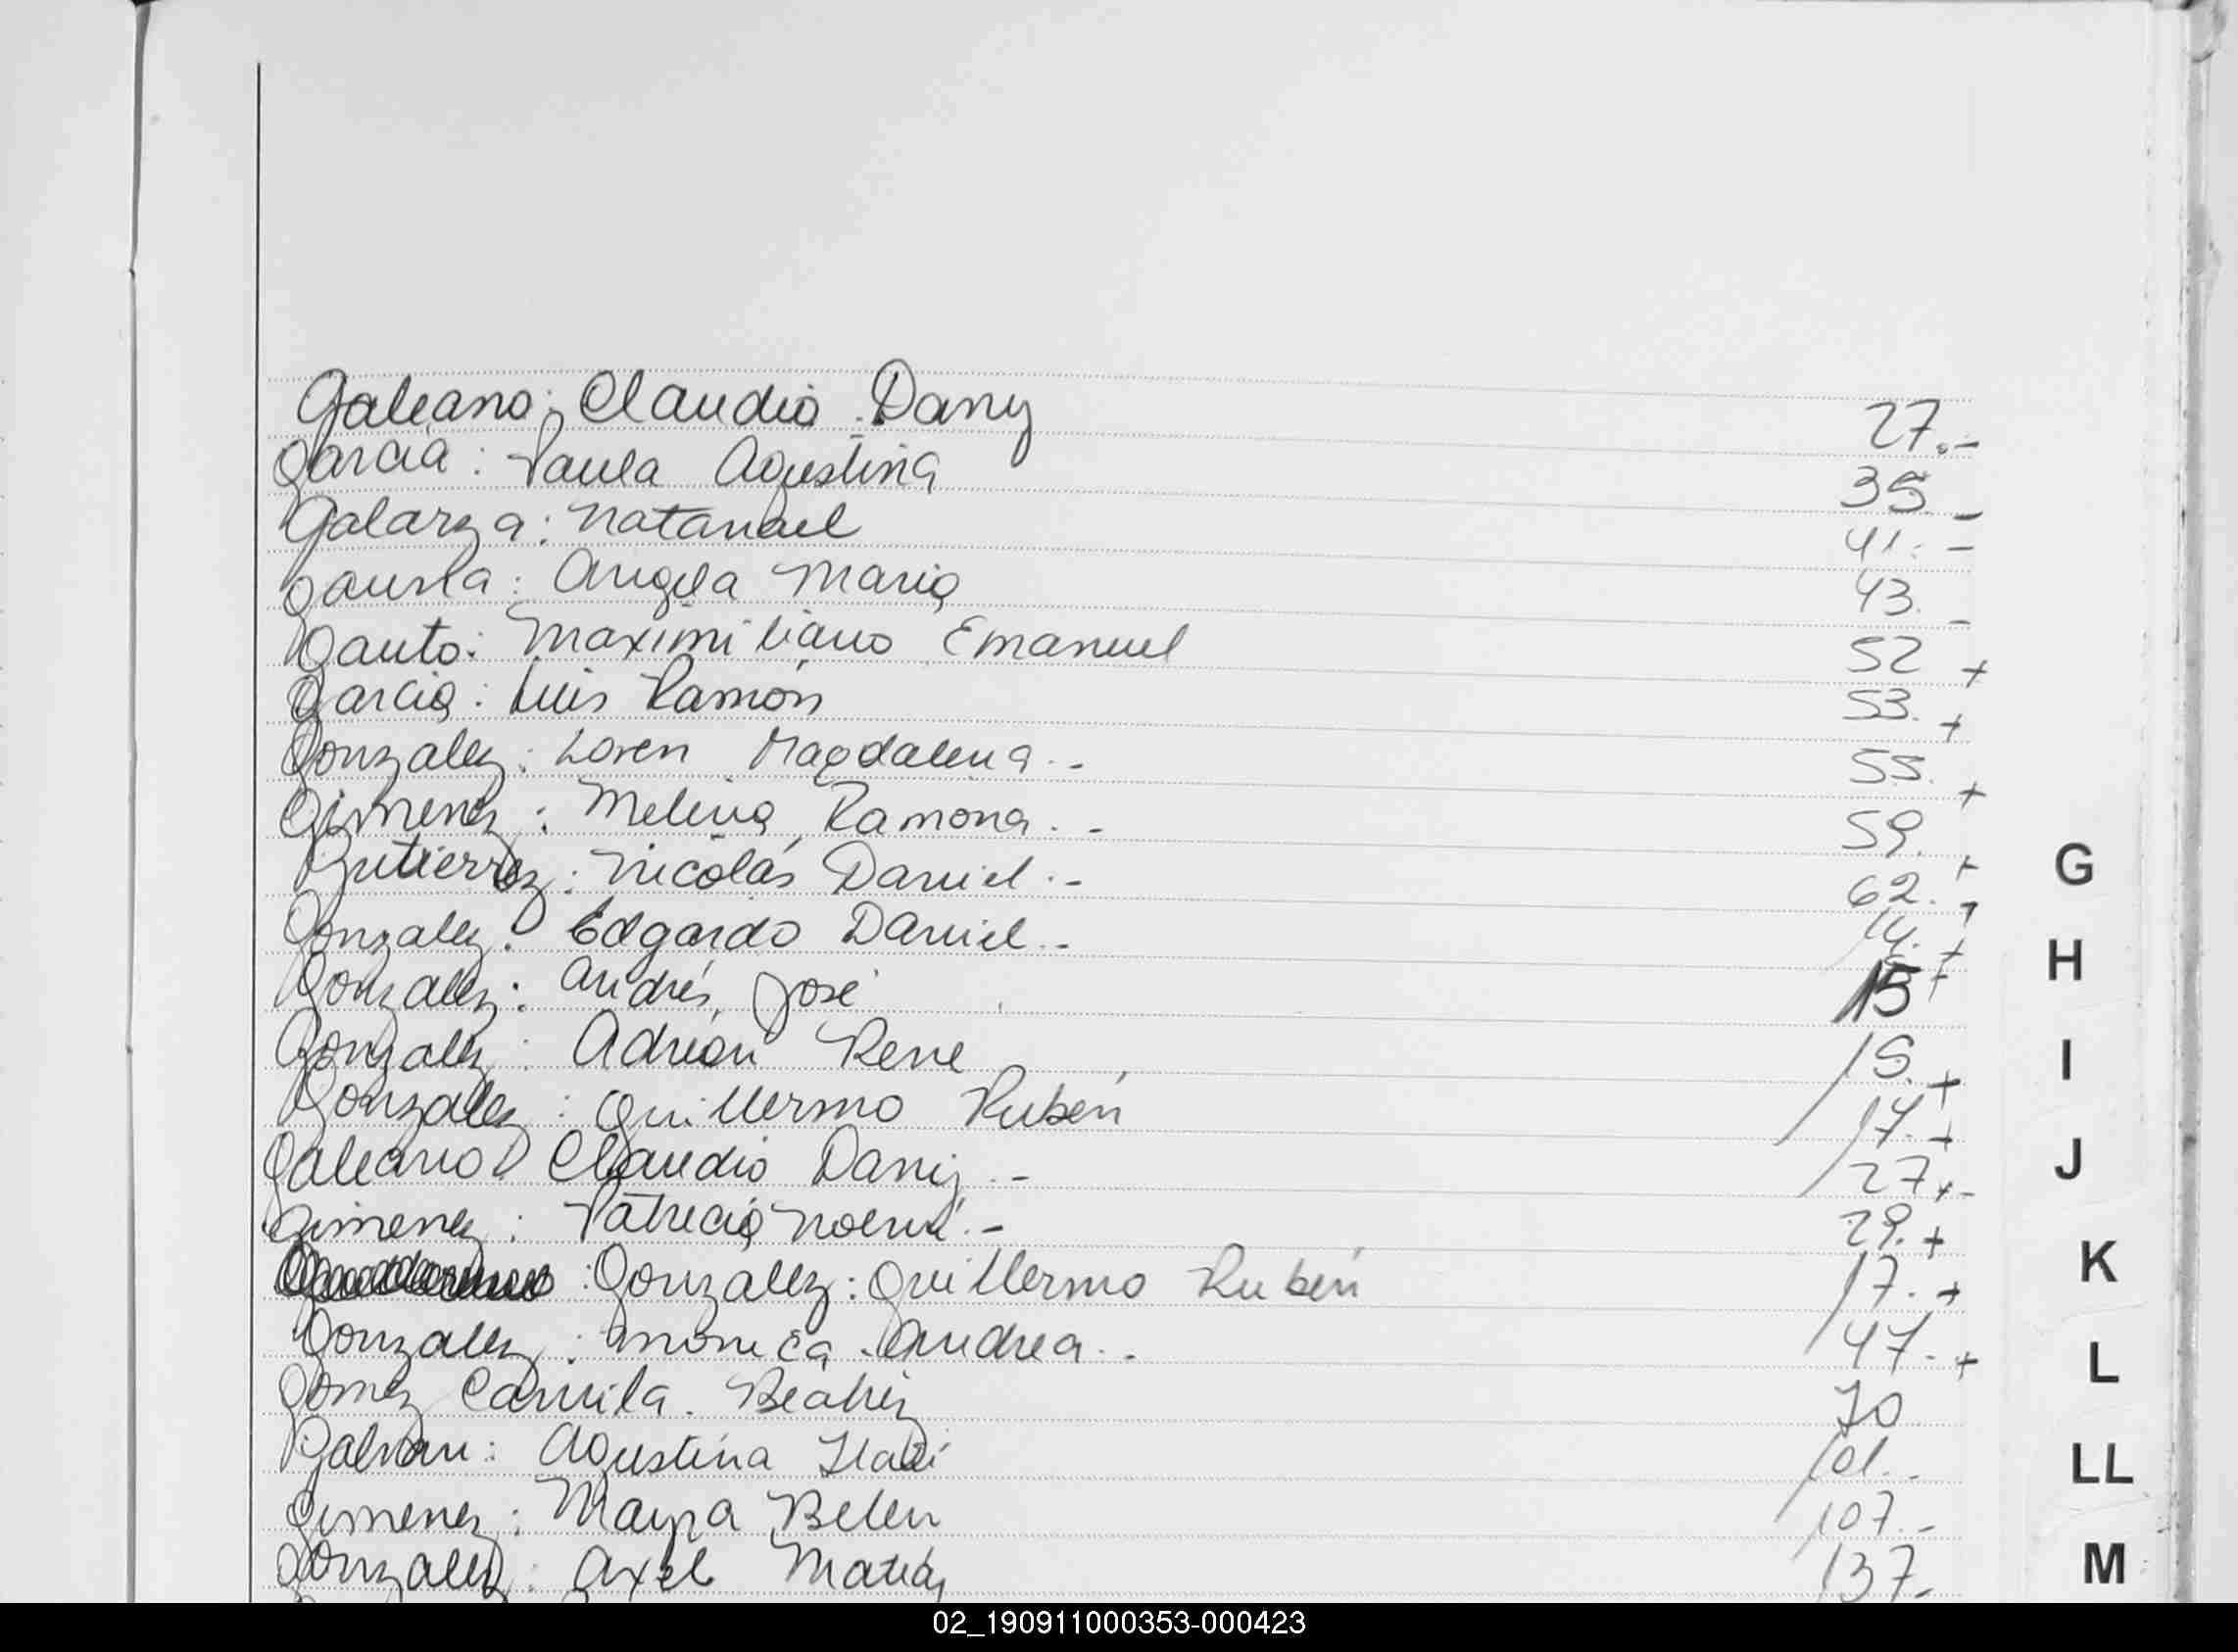 Galeano: Claudio Dany 27.-
Garcia: Paula Agustina 35. -
Galarza: Natanael 41. -
Angela Maria 43. -
Gauto: Maximiliano Emanuel 52 +
Garcia: Luis Ramón 53. +
Gonzalez: Loren Magdalena.- 55. +
Gimenez: Melina Ramona.- 59. +
Gutierrez: Nicolás Daniel.- 62.
Gonzalez: Edgardo Daniel.- 14. +
Gonzalez: Andrés José 15 +
Gonzalez: Adrián Rene 15. +
Gonzalez: Guillermo Rubén 17. +
Galeano Claudio Dany.- 27.-
Gimenez: Patricia Noemí.- 29. +
: Gonzalez: Guillermo Rubén 17. +
Gonzalez: Monica Andrea.- 47. +
Gomez Camila Beatriz 70
Galvan: Agustina Itatí 101.-
Gimenez: Mayra Belen 107.-
Gonzalez: Axel Matías 137.-
G
H
I
J
K
L
LL
M
02_190911000353-000423